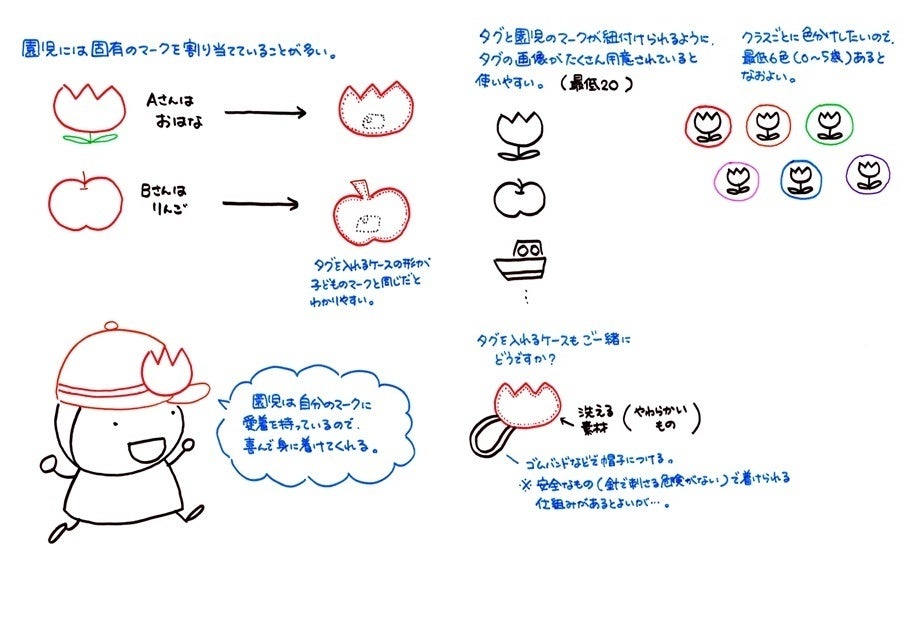 園児には固有のマークを割り当てていることが多い。
Aさんは
おはな
Bさんは
りんご
タグを入れるケースの形が、
子どものマークと同じだと
わかりやすい。
園児は自分のマークに
愛着を持っているので、
喜んで身に着けてくれる。
タグと園児のマークが紐付けられるように、
タグの画像がたくさん用意されていると
使いやすい。(最低20)
クラスごとに色分けしたいので、
最低6色(0〜5歳)あると
なおよい。
タグを入れるケースもご一緒に
どうですか?
洗える
素材
(やわらかい
もの)
ゴムバンドなどで帽子につける。
※安全なもの(針で刺さる危険がない)で着けられる
仕組みがあるとよいが…。